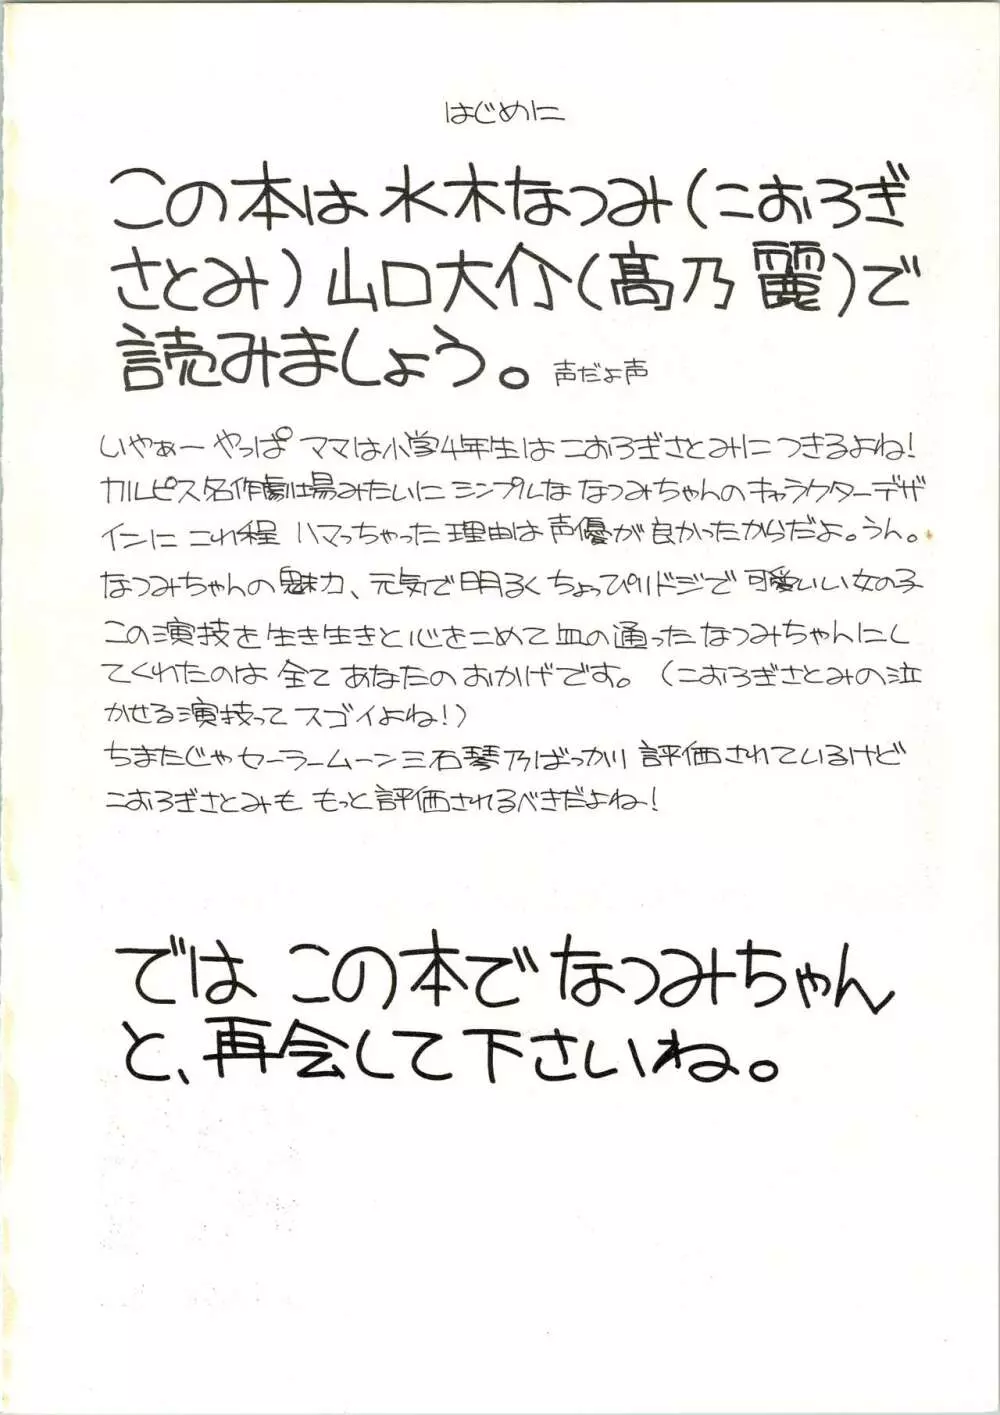 はじめに
この本は水木なつみ(こおろぎ
さとみ)山口大介(高乃麗)で
読みましょう。声だよ声
いやぁーやっぱママは小学4年生はこおろぎさとみにつきるよね!
カルピス名作劇場みたいにシンプルななつみちゃんのキャラクターデザ
インにこれ程ハマっちゃった理由は声優が良かったからだよ。うん。
なつみちゃんの魅力、元気で明るくちょっぴりドジで可愛いい女の子
この演技を生き生きと心をこめて血の通ったなつみちゃんにし
てくれたのは全てあなたのおかげです。(こおろぎさとみの泣
かせる演技ってスゴイよね!)
ちまたじゃセーラームーン三石琴乃ばっかり評価されているけど
こおろぎさとみももっと評価されるべきだよね!
ではこの本でなつみちゃん
と、再会して下さいね。